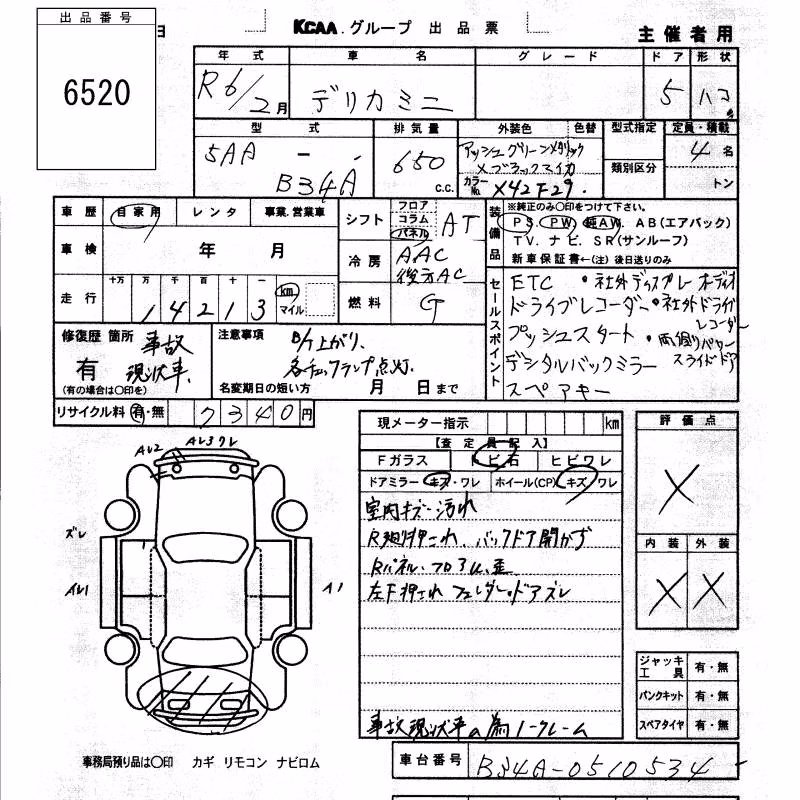 出品番号
6520
KCAA.グループ 出品票
主催者用
年式 車名 グレード ドア 形状
R6/2月 デリカミニ 5 ハコ
型式 排気量 外装色 色替 型式指定 定員・積載
5AA - B34A 650 c.c.
アッシュグリーンメタリック
×ブラックマイカ
カラーNo. X42F29.
類別区分
4名
トン
車歴 自家用 レンタ 事業.営業車
シフト フロア コラム パネル AT
車検 年 月
冷房 AAC 後方AC
走行 十万 万 千 百 十 一
1 4 2 1 3 km マイル
燃料 G
装備品
※純正のみ〇印をつけて下さい。
PS. PW. 純AW. AB(エアバック)
TV. ナビ. SR(サンルーフ)
新車保証書←(注)後日送りのみ
セールスポイント
ETC ・社外ディスプレーオーディオ
ドライブレコーダー ・社外ドライブレコーダー
プッシュスタート ・両側パワースライドドア
デジタルバックミラー
スペアキー
修復歴 箇所 事故現状車.
有
(有の場合は〇印を)
注意事項 B/T上がり、
各チェックランプ点灯.
名変期日の短い方 月 日まで
リサイクル料 有・無 7340円
現メーター指示 km
【査定員記入】
Fガラス トビ石 ヒビワレ
ドアミラー キズ・ワレ ホイール(CP) キズ ワレ
室内キズ・汚れ
R廻押これ、バックドア開かず
Rパネル、フロアじ歪
左F押これ フェンダー・ドアズレ
事故現状車の為ノークレーム
評価点
X
内装 外装
X X
ジャッキ工具 有・無
パンクキット 有・無
スペアタイヤ 有・無
ズレ
A1
事務局預り品は〇印 カギ リモコン ナビロム
車台番号 B34A-0510534